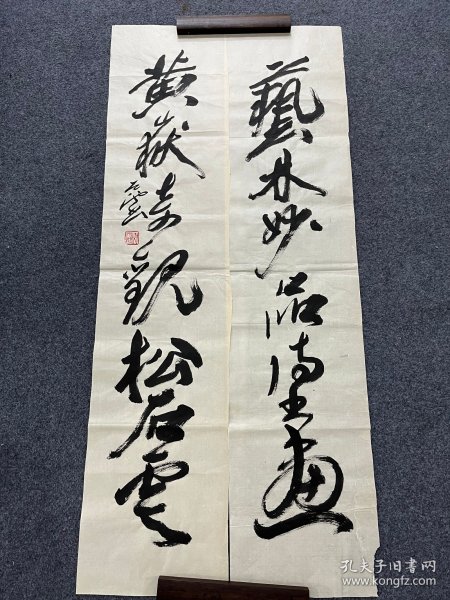 藝林妙品詩書畫
黄嶽奇觀松石雲
孔夫子旧书网
www.kongfz.com